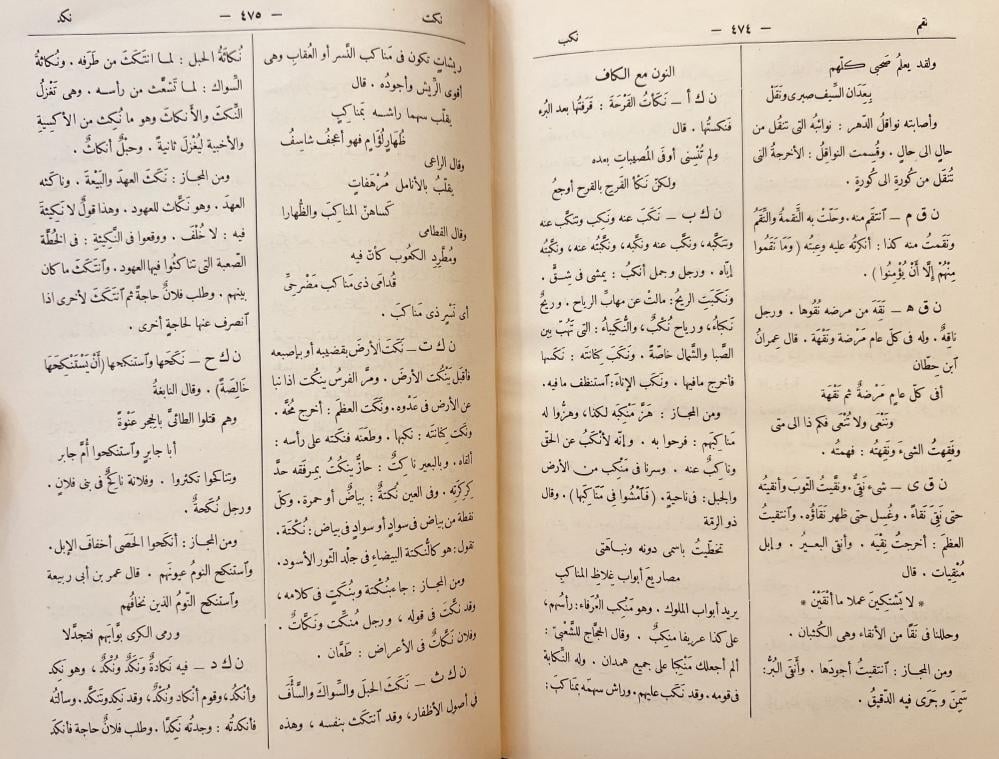 نقم
— ٤٧٤ —
نكب
ولقد يعلمُ صَحبى كلّهم
بِعَدَان السِّيف صبرى ونَقَلْ
وأصابته نواقلُ الدّهر : نوائبُه التى تنقل من
حالٍ الى حالٍ . وقُسمت النواقلُ : الأخرجةُ التى
تُنقَل من كُورة الى كُورةٍ .
ن ق م — ٱنتقم منه . وحَلّتْ به النِّقمةُ والنِّقَمُ
ونَقَمتُ منه كذا : أنكرته عليه وعِبتُه (وَمَا نَقَمُوا
مِنْهُمْ إِلَّا أَنْ يُؤْمِنُوا) .
ن ق ه — نَقِهَ من مرضه نُقُوها . ورجل
ناقِهٌ . وله فى كلّ عام مَرْضة ونَقْهَة . قال عِمرانُ
ٱبن حِطّان
أفى كلّ عامٍ مَرْضةٌ ثم نَقْهَة
وتَنْعَى ولا تُنْعَى فكم ذا الى متى
وفَقِهتُ الشىءَ ونَقِهتُه : فهمتُه .
ن ق ى — شىء نَقِىٌّ . ونقَّيتُ الثوبَ وأنقيتُه
حتى نَقِىَ نَقاءً . وغُسِل حتى ظهر نَقَاؤُه . وٱنتقيتُ
العظمَ : أخرجتُ نِقْيَه . وأنقَى البعيرُ . وإبل
مُنْقِيات . قال
* لا يَشْتكِينَ عملا ما أَنْقَيْنْ *
وحللنا فى نَقًا من الأنقاء وهى الكُثبان .
ومن المجاز : ٱنتقيتُ أجودَها . وأَنقَى البُرُّ :
سَمِنَ وجَرَى فيه الدّقيقُ .
النون مع الكاف
ن ك أ — نَكَأتُ القَرْحَةَ : قَرَفتُها بعد البُرء
فنكستُها . قال
ولم تُنْسِنى أوفَى المصيباتِ بعده
ولكنّ نَكْأَ القَرحِ بالقرح أوجعُ
ن ك ب — نَكَبَ عنه ونَكِب وتنكّب عنه
وتنكّبه، ونكّب عنه ونكّبه، ونكّبتُه عنه، ونكّبتُه
إيّاه . ورجل وجمل أنكبُ : يمشى فى شِقٍّ .
ونَكَبَتِ الريحُ : مالتْ عن مهابّ الرياح . وريحٌ
نَكباءُ، ورياح نُكْبٌ، والنُّكَيباءُ : التى تَهُبّ بين
الصَّبا والشَّمال خاصّةً . ونكَبَ كِنانَته : نكَسها
فأخرج مافيها . ونكَب الإناءَ : ٱستنظف ما فيه .
ومن المجاز : هَزَّ مَنْكِبَه لكذا، وهزّوا له
مَناكِبَهم : فرحوا به . وإنّه لأنكَبُ عن الحقّ
وناكِبٌ عنه . وسرنا فى مَنْكِبٍ من الأرض
والجبل : فى ناحيةٍ . (فَٱمْشُوا فى مَنَاكِبِهَا) . وقال
ذو الرمّة
تخطّيتُ باسمى دونه ونباهتى
مصاريعَ أبوابٍ غِلاظِ المناكبِ
يريد أبواب الملوك . وهو مَنكِبُ العُرَفاء : رأسُهم،
على كذا عريفا مَنكِبٌ . وقال الحجّاج للشَّعبىّ :
ألم أجعلك مَنْكِبًا على جميع همدان . وله النِّكابة
فى قومه . وقد نَكَب عليهم . وراش سهمَه بمَناكِبَ :
نكت
— ٤٧٥ —
نكد
ريشاتٍ تكون فى مَناكب النَّسر أو العُقاب وهى
أقوى الرِّيش وأجودُه . قال
يقلّب سهما راشــه بمَناكِبٍ
ظُهَارٍ لُؤَامٍ فهو أعجَفُ شاسِفُ
وقال الراعى
يقلّبُ بالأنامل مُرْهَفاتٍ
كساهنّ المناكبَ والظُّهارا
وقال القطامى
ومُطّرِدِ الكعوب كأنّ فيه
قُدَامَى ذى مَناكبَ مَضْرَحِىِّ
أى نَسْرٍ ذى مَناكبَ .
ن ك ت — نَكَتَ الأرضَ بقضيبه أو بإصبعه
فأقبل يَنْكُت الأرضَ . ومرَّ الفرسُ ينكُت اذا نبا
عن الأرض فى عَدْوه . ونكَت العظمَ : أخرج مُخَّه .
ونكَت كنانتَه : نكبها . وطعنه فنكَته على رأسه :
ألقاه . وبالبعير ناكِتٌ : حازٌّ ينكُت بمِرفقه حدَّ
كِرْكِرَته . وفى العين نُكتَةٌ : بياضٌ أو حمرة . وكلّ
نقطة من بياض فى سوادٍ أو سوادٍ فى بياض : نُكْتة،
تقول : هو كالنُّكتة البيضاءِ فى جلد الثَّور الأسود .
ومن المجاز : جاء بنُكتة وبنُكَتٍ فى كلامه .
وقد نكَّتَ فى قوله ، ورجل مُنكِّت ونَكَّات .
وفلان نكَّاتٌ فى الأعراض : طَعَّان .
ن ك ث — نَكَثَ الحبلَ والسِّواكَ والسَّأَفَ
فى أصول الأظفار، وقد ٱنتكَث بنفسه ، وهذه
نُكَاثةُ الحبل : لمــا ٱنتكَثَ من طَرَفه . ونُكاثةُ
السِّواك : لمـا تَشعَّثَ من رأســه . وهى تَغْزِلُ
النِّكْثَ والأنكاثَ وهو ما نُكِث من الأكسِية
والأخبية لِيُغْزَل ثانيةً . وحبْلٌ أنكاثٌ .
ومن المجاز : نَكَثَ العهدَ والبَيْعةَ . وناكثه
العهدَ . وهو نَكّاث للعهود . وهذا قولٌ لا نَكِيثةَ
فيه : لا خُلْفَ . ووقعوا فى النَّكِيثة : فى الخُطَّة
الصَّعبة التى تناكثوا فيها العهود . وٱنتكَثَ ما كان
بينهم . وطلب فلانٌ حاجةً ثم ٱنتكَثَ لأخرى اذا
ٱنصرف عنها لحاجةٍ أخرى .
ن ك ح — نَكَحَها وٱستنكحها (أَنْ يَسْتَنْكِحَهَا
خَالِصَةً) . وقال النابغةُ
وهم قتلوا الطائىَّ بالحِجر عَنْوةً
أبا جابرٍ وٱستنكحوا أُمَّ جابر
وتناكحوا تكثروا . وفلانة ناكِحٌ فى بنى فلان .
ورجل نُكَحةٌ .
ومن المجاز : أنكحوا الحَصَى أخفافَ الإبل .
وٱستنكح النومُ عيونَهم . قال عمر بن أبى ربيعة
وٱستنكح النّومُ الذين نخافُهم
ورمى الكرى بوّابَهم فتجدّلا
ن ك د — فيه نَكَادةٌ ونَكَدٌ ونُكْدٌ، وهو نَكِد
وأنكَدُ، وقوم أنكاد ونُكْدٌ، وقد نكِد وتَنكّد . وسألته
فأنكدتُه : وجدتُه نَكِدًا . وطلب فلانٌ حاجة فأنكَدَ